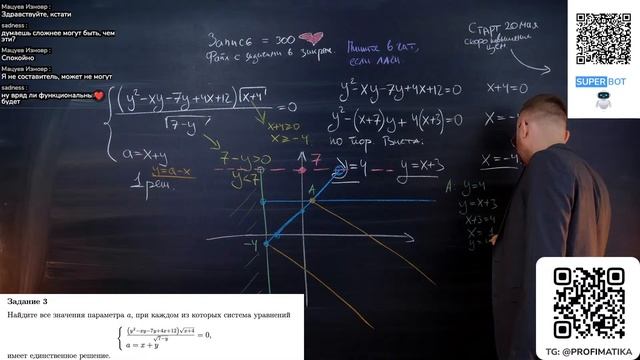 Мацуев Изновр :
Здравствуйте, кстати
sadness :
думаешь сложнее могут быть, чем эти?
Мацуев Изновр :
Спокойно
Мацуев Изновр :
Я не составитель, может не могут
sadness :
ну вряд ли функциональны❤️ будет
Запись = 300
Пишите в чат,
если лаги.
СТАРТ 20 мая
(y²-xy-7y+4x+12)√x+4
√7-y
=0
a=x+y
y=a-x
1 реш.
x+4≥0
x≥-4
7-y>0
y<7
7
A
-4
y²-xy-7y+4x+12=0
y²-(x+7)y+4(x+3)=0
по теор. Виета:
y=4
y=x+3
x+4=0
x=-4
A: y=4
y=x+3
x+3=4
SUPER BOT
TG: @PROFIMATIKA
Задание 3
Найдите все значения параметра a, при каждом из которых система уравнений
(y²−xy−7y+4x+12)√x+4
√7−y
= 0,
a = x + y
имеет единственное решение.